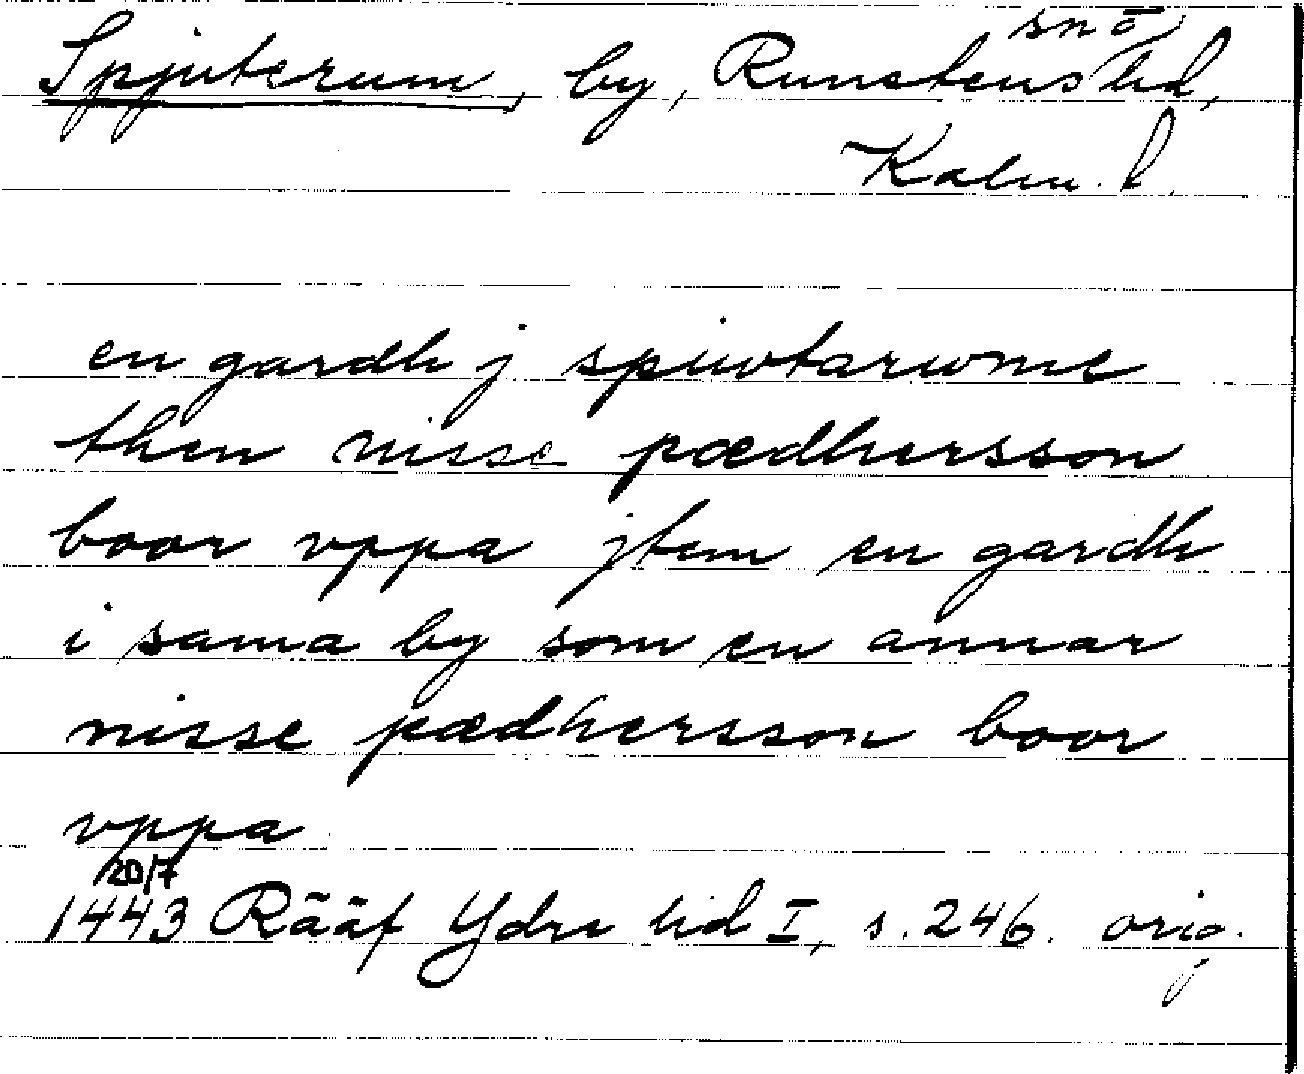 snö
Spjuterum, by, Runstens hd,
Kalm. l.
en gardh j spiwtarwme
then nisse pædhersson
boor vppa jtem en gardh
i sama by som en annar
nisse pædhersson boor
vppa
20/7
1443 Rääf Ydre hd I, s. 246. orig.